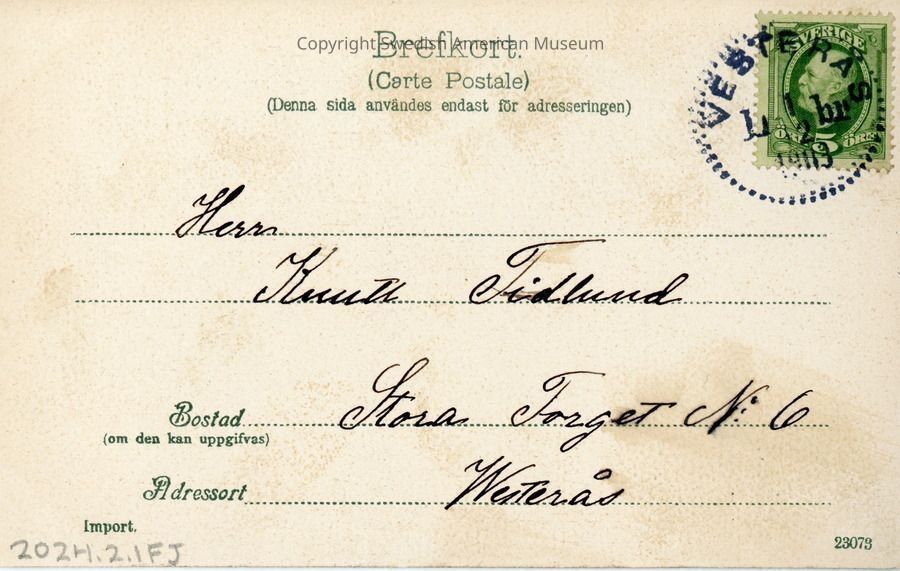 Copyright Swedish American Museum
Brefkort.
(Carte Postale)
(Denna sida användes endast för adresseringen)
SVERIGE
5
ÖRE
VESTERÅS
1903
Herr
Knutt Tidlund
Bostad Stora Torget N: 6
(om den kan uppgifvas)
Adressort Westerås
Import.
2024.2.1FJ
23073